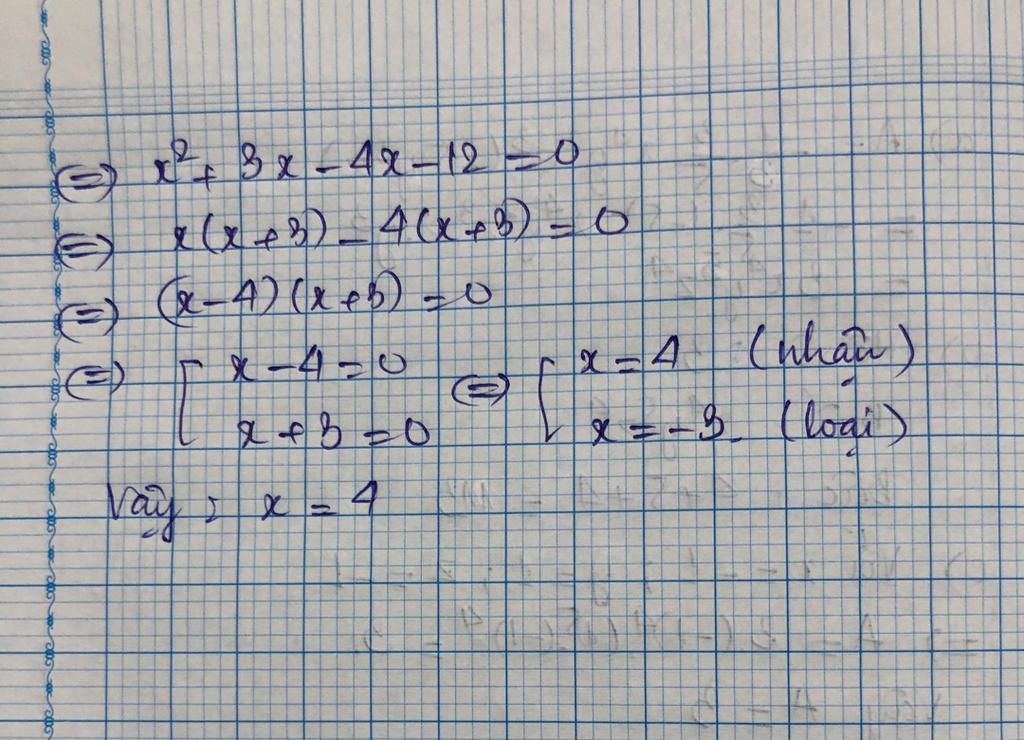 ⇔ x² + 3x - 4x - 12 = 0
⇔ x(x+3) - 4(x+3) = 0
⇔ (x-4)(x+3) = 0
⇔ [ x - 4 = 0 ⇔ [ x = 4 (nhận)
x + 3 = 0 x = -3 (loại)
Vậy : x = 4